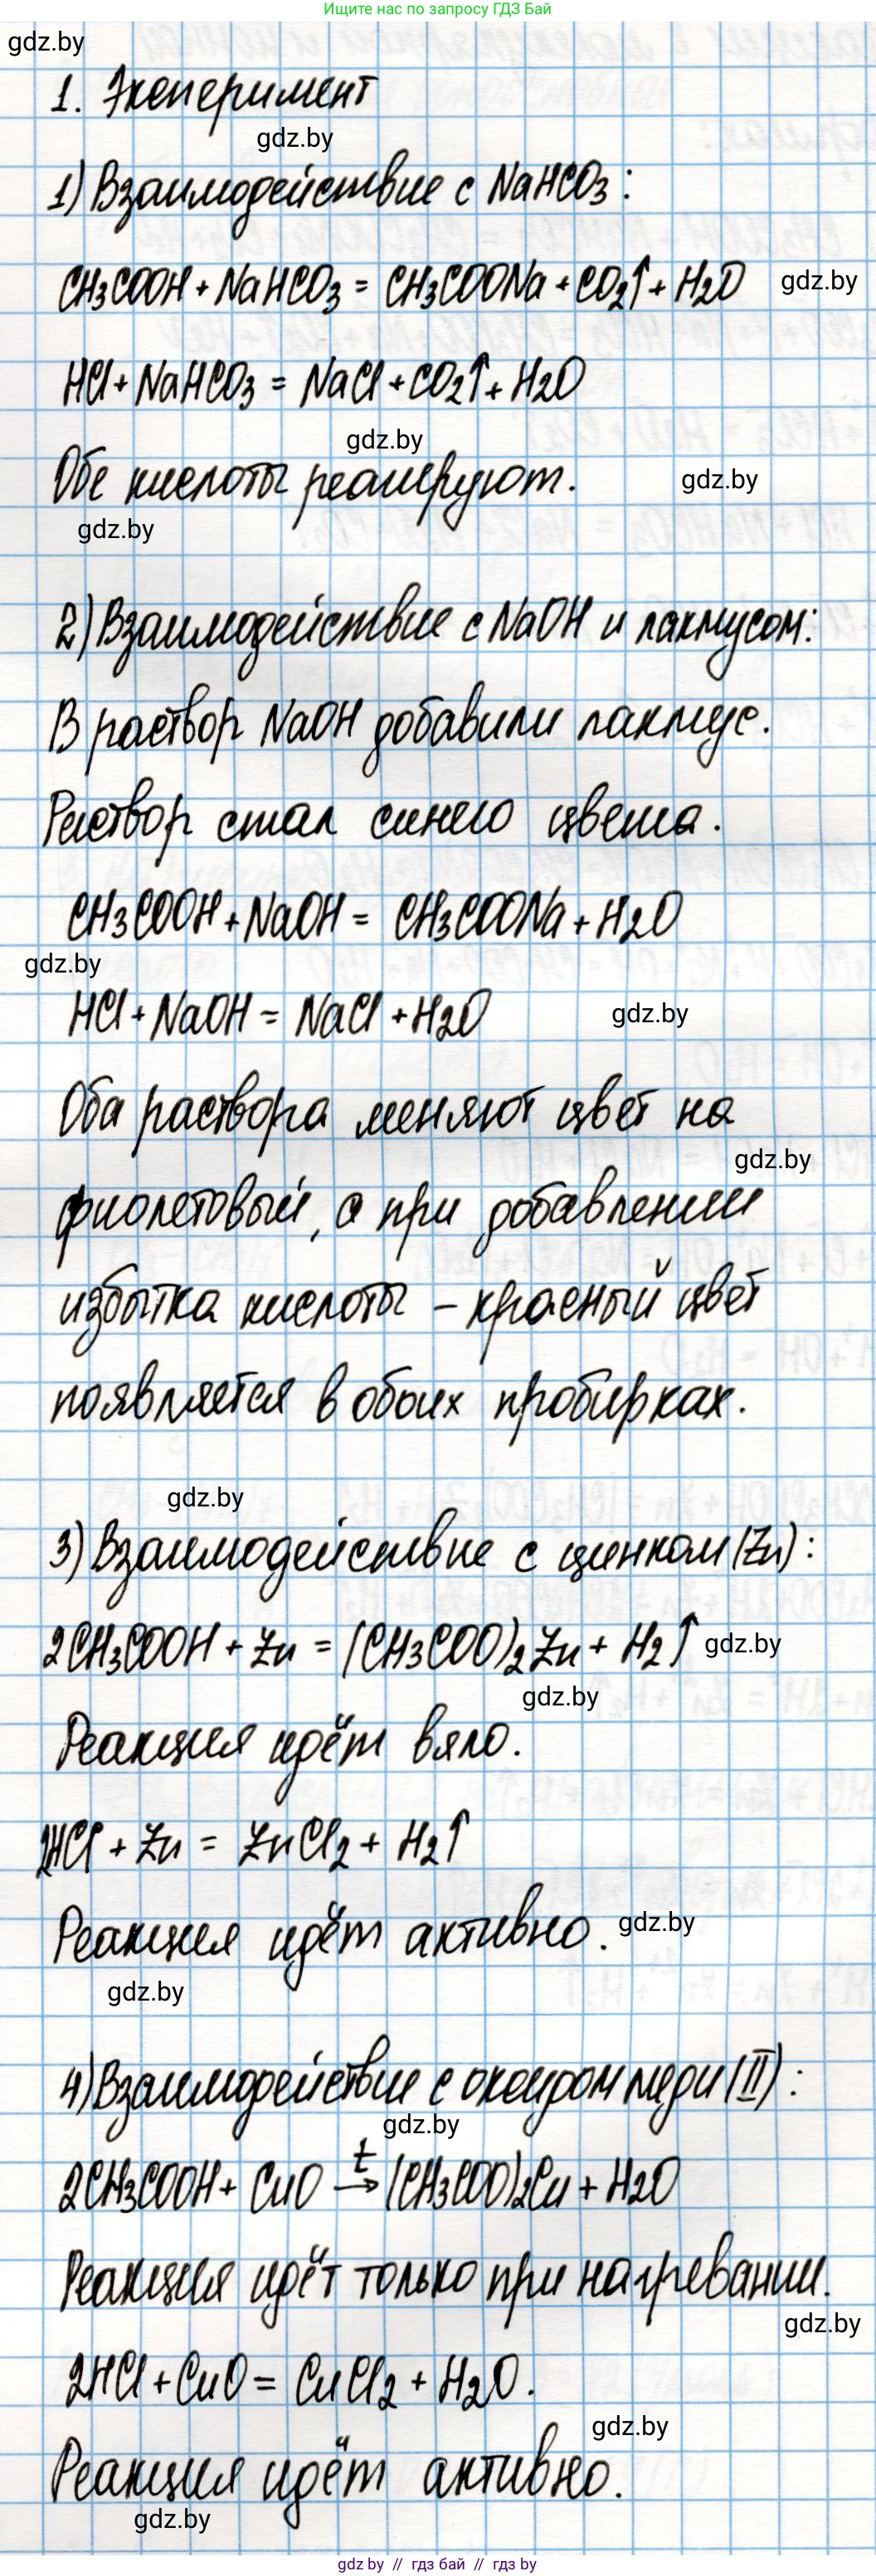 Ищите нас по запросу ГДЗ Бай
gdz.by
1. Эксперимент
gdz.by
1) Взаимодействие с NaHCO3:
CH3COOH + NaHCO3 = CH3COONa + CO2↑ + H2O gdz.by
HCl + NaHCO3 = NaCl + CO2↑ + H2O
gdz.by
Обе кислоты реагируют. gdz.by
gdz.by
2) Взаимодействие с NaOH и лакмусом:
В раствор NaOH добавили лакмус.
Раствор стал синего цвета.
CH3COOH + NaOH = CH3COONa + H2O
gdz.by
HCl + NaOH = NaCl + H2O gdz.by
Оба раствора меняют цвет на
gdz.by
фиолетовый, а при добавлении
избытка кислоты – красный цвет
появляется в обоих пробирках.
gdz.by
3) Взаимодействие с цинком (Zn):
2CH3COOH + Zn = (CH3COO)2Zn + H2↑ gdz.by
gdz.by
Реакция идёт вяло.
2HCl + Zn = ZnCl2 + H2↑
Реакция идёт активно. gdz.by
gdz.by
4) Взаимодействие с оксидом меди (II):
gdz.by
2CH3COOH + CuO t→ (CH3COO)2Cu + H2O
Реакция идёт только при нагревании.
gdz.by
2HCl + CuO = CuCl2 + H2O.
gdz.by
Реакция идёт активно.
gdz.by
gdz by // гдз бай // gdz by